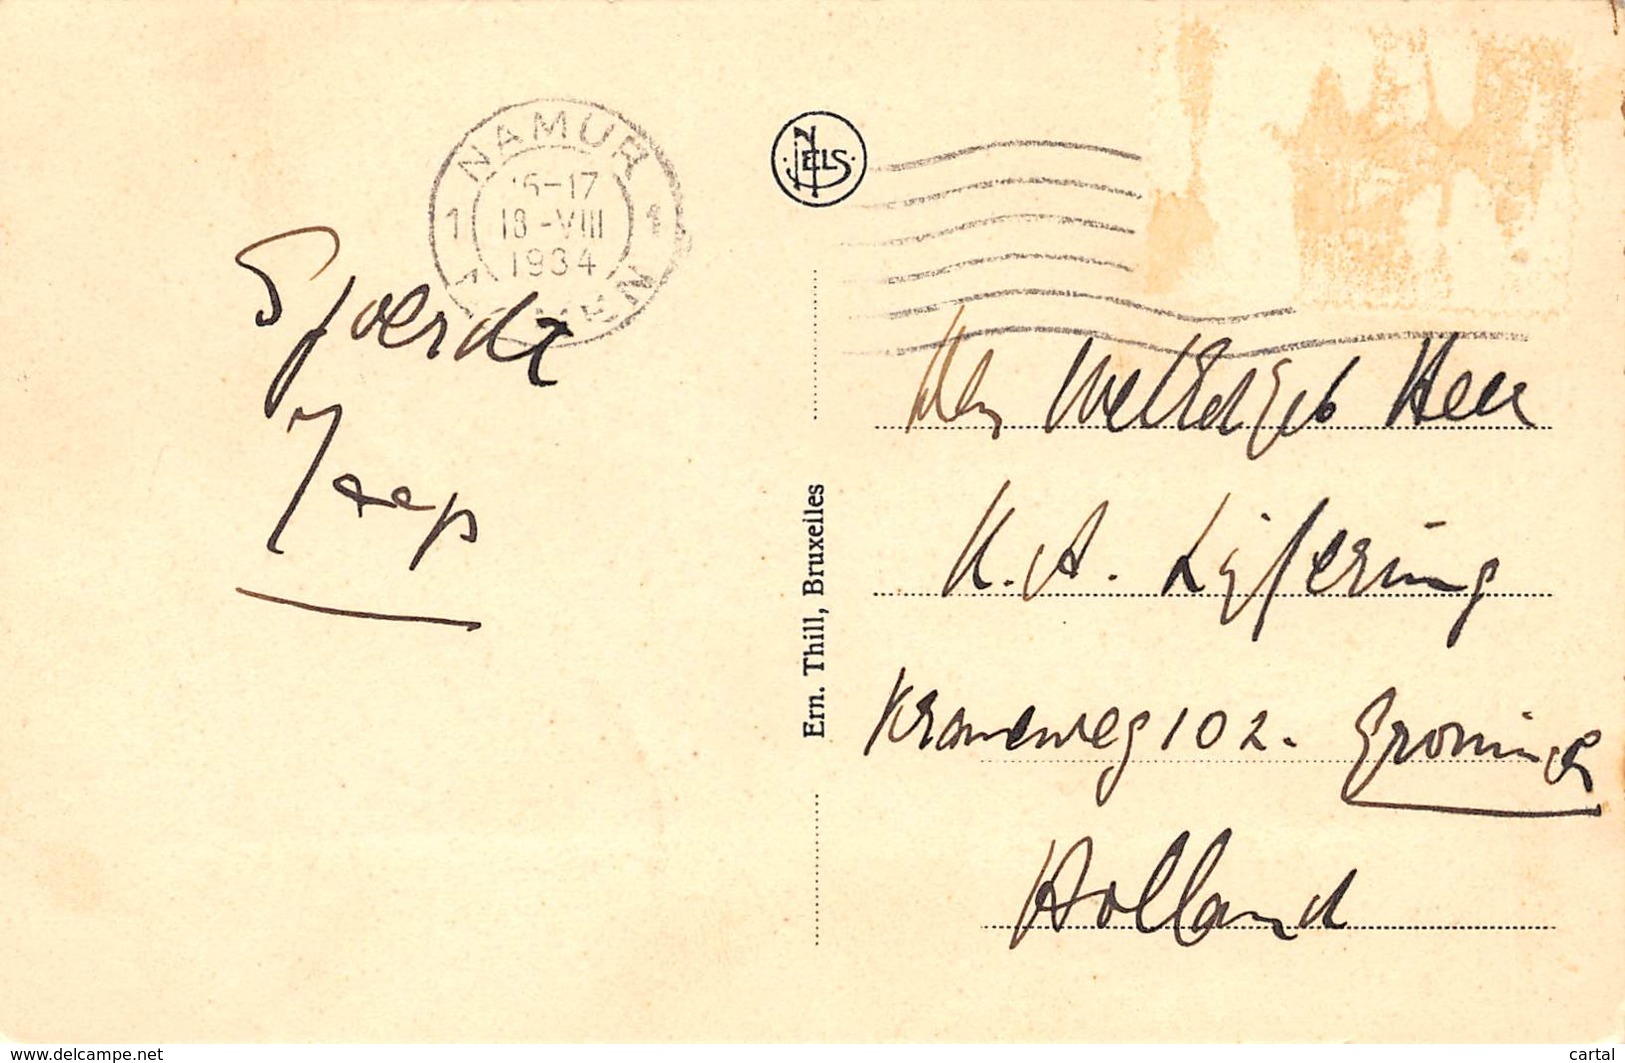 NAMUR
16-17
18-VIII
1934
1 1
NELS
Sjoerdt
Jaap
Ern. Thill, Bruxelles
Den WelEdGeb Heer
K. A. Lijfering
Kraneweg 102. Groningen
Holland
www.delcampe.net
cartal